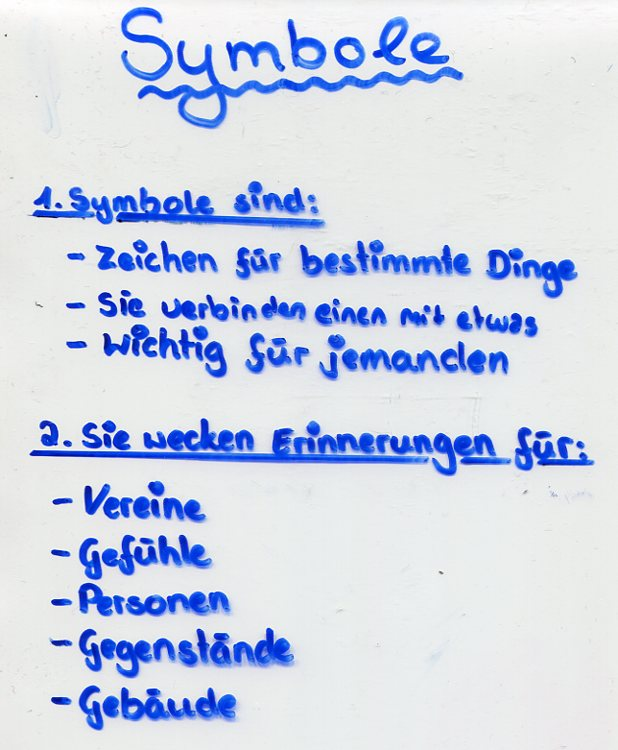 Symbole
1. Symbole sind:
- Zeichen für bestimmte Dinge
- Sie verbinden einen mit etwas
- wichtig für jemanden
2. Sie wecken Erinnerungen für:
- Vereine
- Gefühle
- Personen
- Gegenstände
- Gebäude